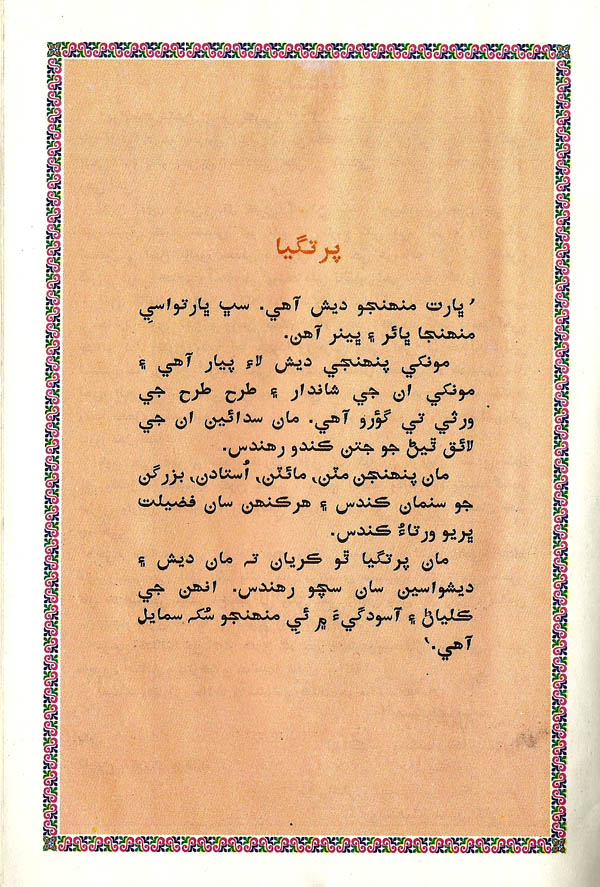 پرتگيا
’ ڀارت منهنجو ديش آهي. سڀ ڀارتواسي
منهنجا ڀائر ۽ ڀينر آهن.
مونکي پنهنجي ديش لاءِ پيار آهي ۽
مونکي ان جي شاندار ۽ طرح طرح جي
ورثي تي گؤرو آهي. مان سدائين ان جي
لائق ٿيڻ جو جتن ڪندو رهندس.
مان پنهنجن مٽن، مائٽن، اُستادن، بزرگن
جو سنمان ڪندس ۽ هرڪنهن سان فضيلت
ڀريو ورتاءُ ڪندس.
مان پرتگيا ٿو ڪريان تہ مان ديش ۽
ديشواسين سان سچو رهندس. انهن جي
ڪلياڻ ۽ آسودگيءَ ۾ ئي منهنجو سُک سمايل
آهي.‘